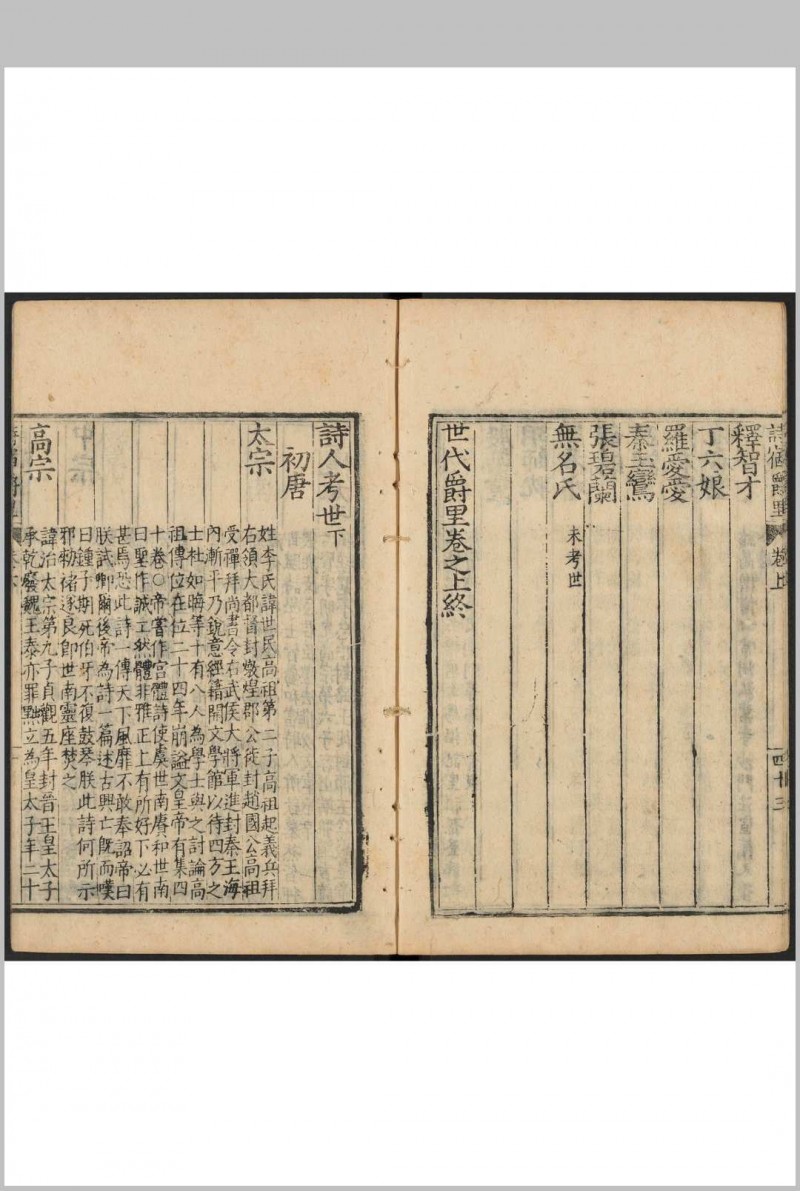 卷上
四十三
釋智才
丁六娘
羅愛愛
秦玉鸞
張碧蘭
無名氏
未考世
世代爵里卷之上終
詩人考世下
初唐
太宗
姓李氏諱世民高祖第二子高祖起義兵拜
右領大都督封燉煌郡公徙封趙國公高祖
受禪拜尚書令右武侯大將軍進封秦王海
內漸平乃銳意經籍開文學館以待四方之
士杜如晦等十有八人為學士與之討論高
祖傳位在位二十四年崩謚文皇帝有集四
十卷○帝嘗作宮體詩使虞世南賡和世南
曰聖作誠工然體非雅正上有所好下必有
甚焉恐此詩一傳天下風靡不敢奉詔帝曰
朕試卿爾後帝為詩一篇述古興亡既而嘆
曰鍾子期死伯牙不復鼓琴朕此詩何所示
邪勑褚遂良即世南靈座焚之
高宗
諱治太宗第九子貞觀五年封晉王皇太子
承乾廢魏王泰亦罪黜立為皇太子年二十